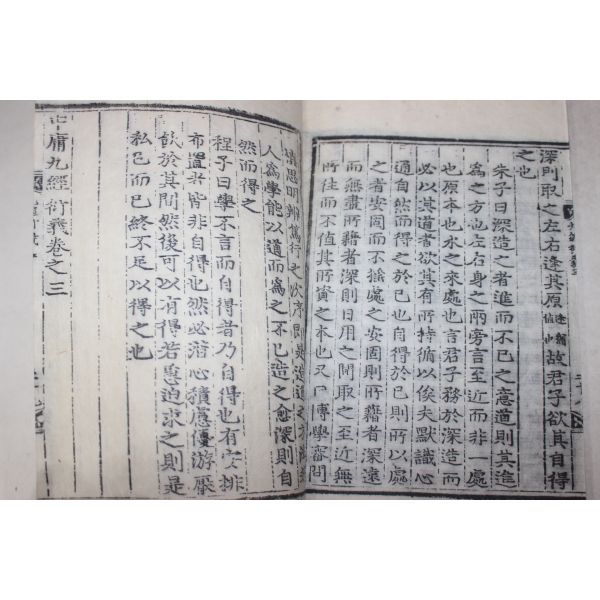 深則取之左右逢其原 逢猶値也 故君子欲其自得
之也
朱子曰深造之者進而不已之意道則其進
爲之方也左右身之兩旁言至近而非一處
也原本也水之來處也言君子務於深造而
必以其道者欲其有所持循以俟夫默識心
通自然而得之於已也自得於已則所以處
之者安固而不搖處之安固則所藉者深遠
而無盡所藉者深則日用之間取之至近無
所往而不値其所資之本也又曰博學審問
愼思明辨篤行之次序即是造道之方法
人爲學能以道而爲之不已造之愈深則自
然而得之
程子曰學不言而自得者乃自得也有安排
布置者皆非自得也然必潛心積慮優游厭
飫於其間然後可以有得若急迫求之則是
私已而已終不足以得之也
中庸九經衍義卷之三